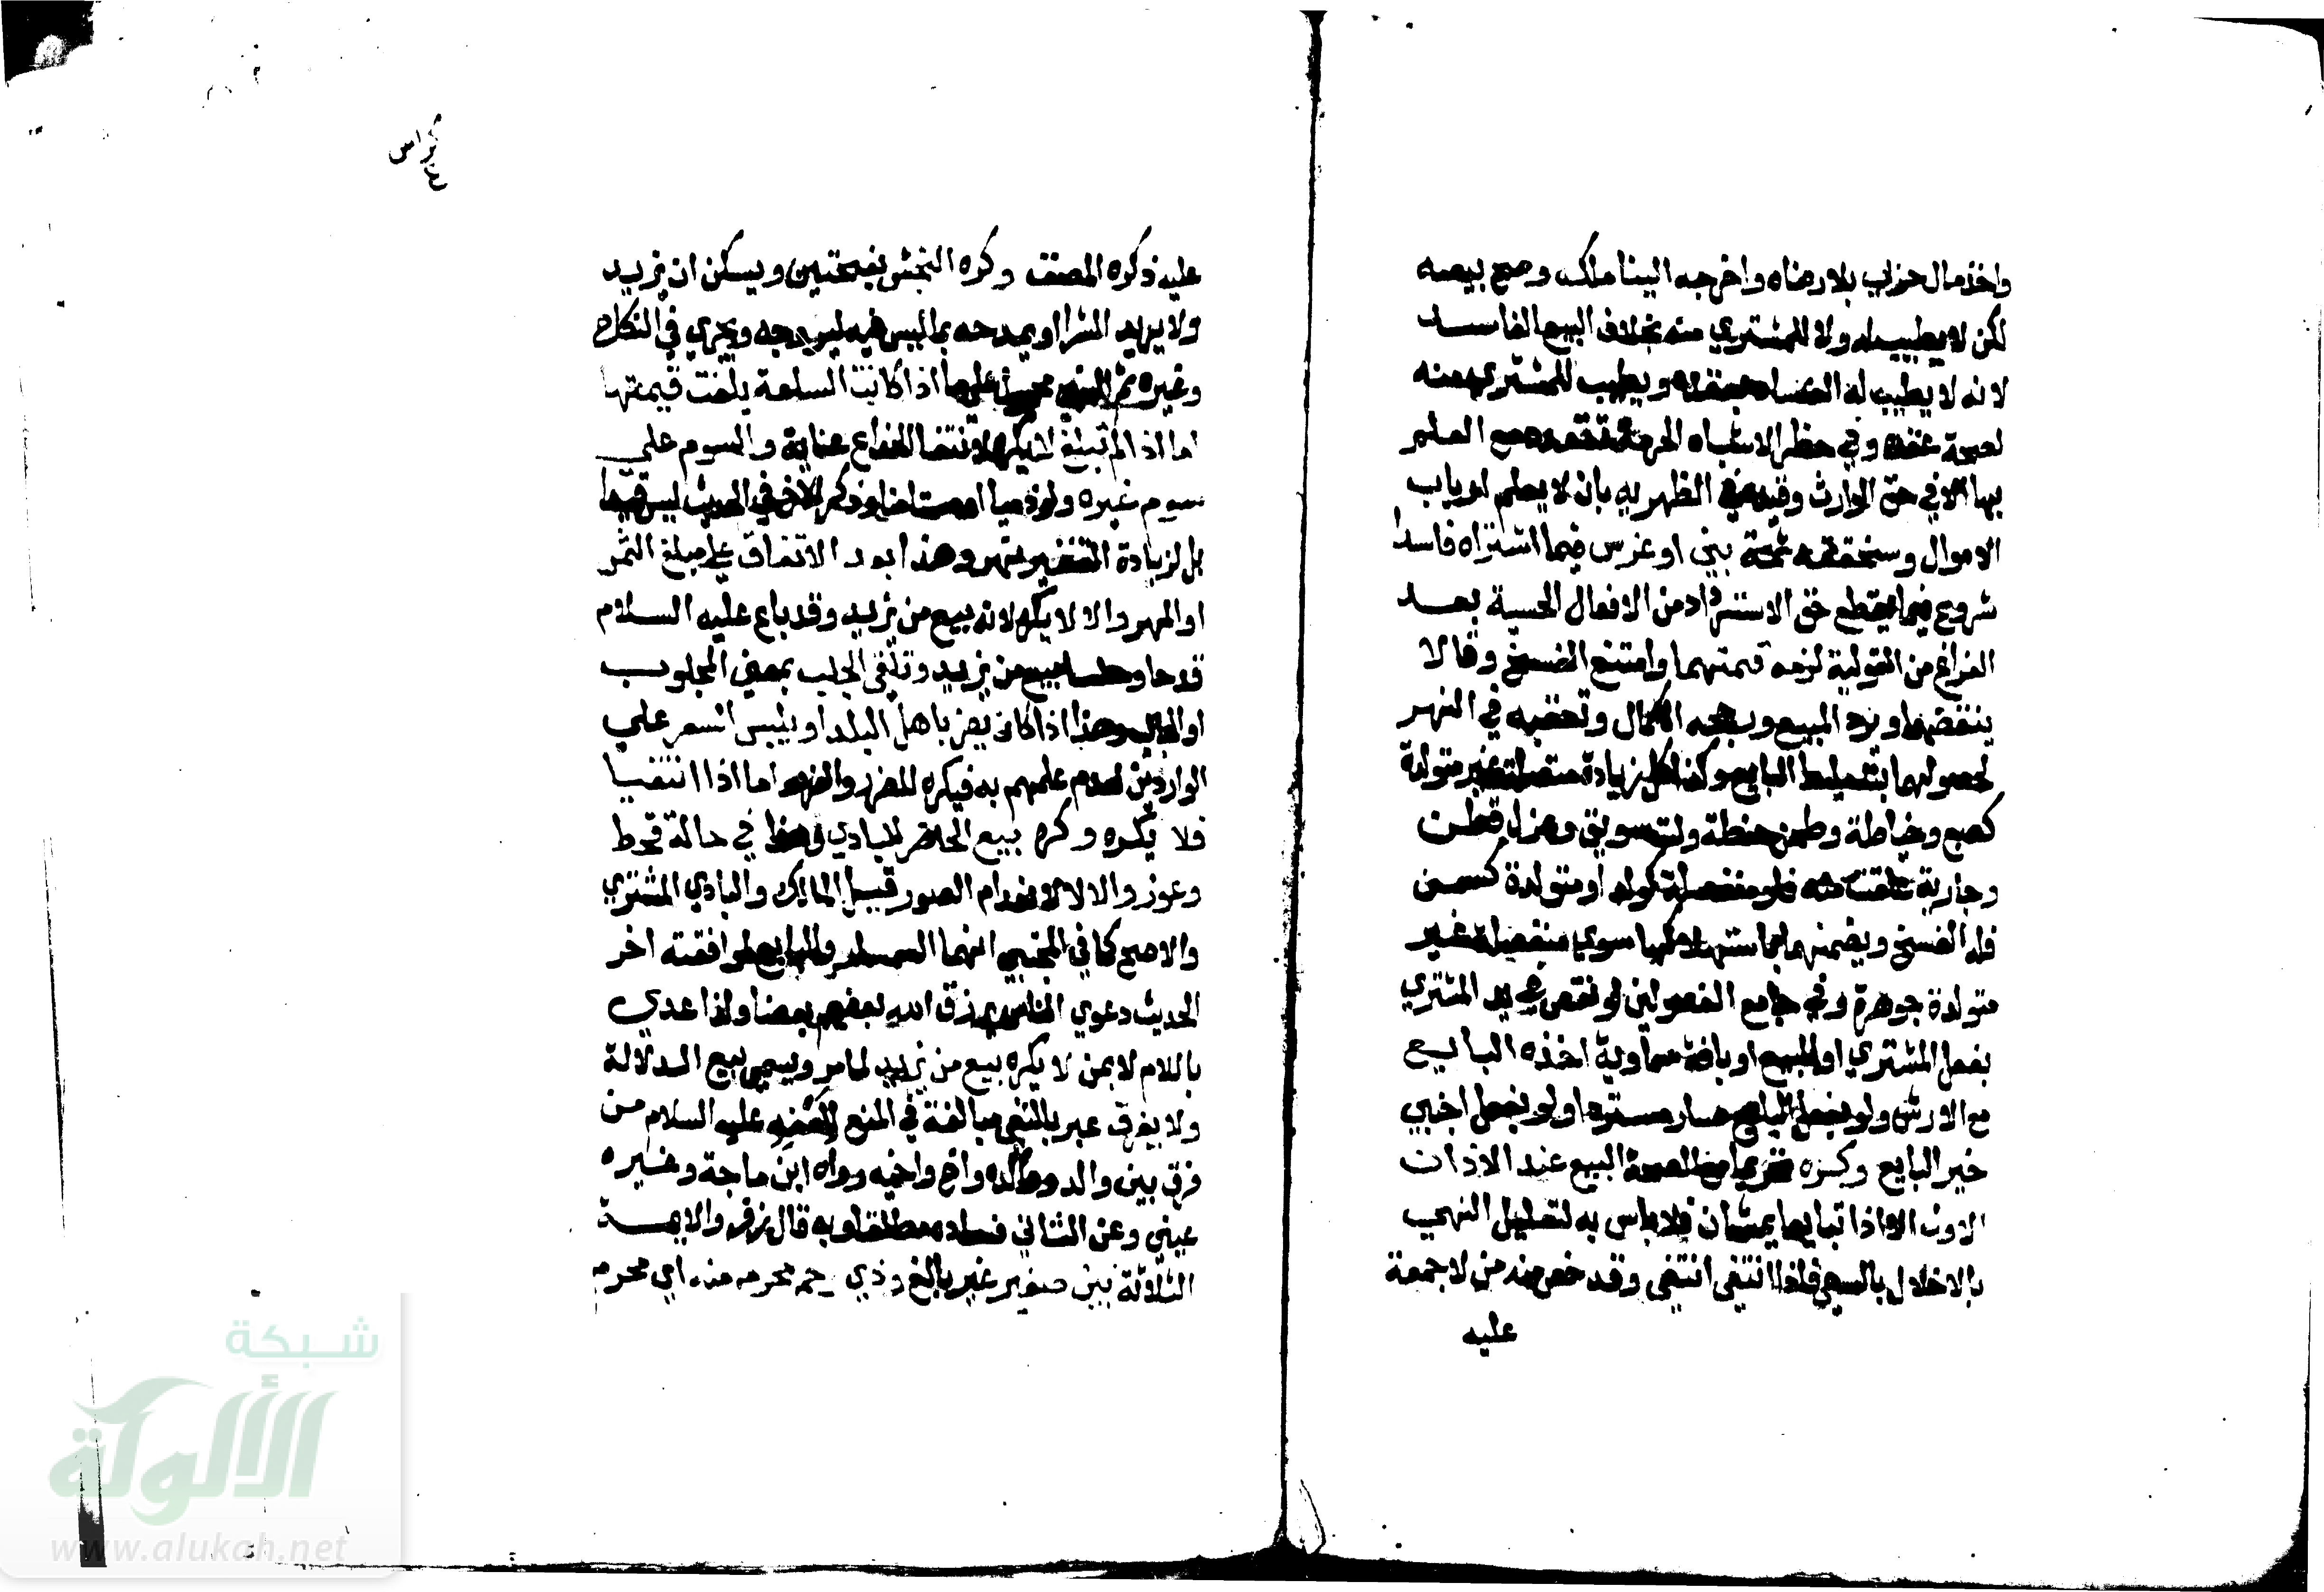 واخذ مال حربي بلا رضاه واخرجه الينا ملكه وصح بيعه
لكن لا يطيب له ولا للمشتري منه بخلاف البيع الفاسد
لانه لا يطيب له لفساد عقده ويطيب للمشتري منه
لصحة عقده وفي حظر الاشباه الحرمة تتعدد مع العلم
بها الا في حق الوارث وقيده في الظهيرية بان لا يعلم ارباب
الاموال وسنحققه ثمة بنى او غرس فيما اشتراه فاسدا
شروع فيما يقطع حق الاسترداد من الافعال الحسية بعد
الفراغ من القولية لزمه قيمتهما وامتنع الفسخ وقالا
ينقضهما ويرد المبيع ورجحه الكمال وتعقبه في النهر
لحصولهما بتسليط البايع وكذا كل زيادة متصلة غير متولدة
كصبغ وخياطة وطحن حنطة ولت سويق وغزل قطن
وجارية علقت منه فلو منفصلة كولد او متولدة كسمن
فله الفسخ ويضمنها باستهلاكها سوى منفصلة غير
متولدة جوهرة وفي جامع الفصولين لو نقص في يد المشتري
بفعل المشتري او المبيع او بافة سماوية اخذه البايع
مع الارش ولو بفعل البايع صار مستردا ولو بفعل اجنبي
خير البايع وكره تحريما مع الصحة البيع عند الاذان
الاول الا اذا تبايعا يمشيان فلا باس به لتعليل النهي
بالاخلال بالسعي فاذا انتفى انتفى وقد خص منه من لا جمعة
عليه
كراس
عليه ذكره المصنف وكره النجش بفتحتين ويسكن ان يزيد
ولا يريد الشرا او يمدحه بما ليس فيه ليروجه ويجري في النكاح
وغيره ثم النهي محمول على ما اذا كانت السلعة بلغت قيمتها
اما اذا لم تبلغ لا يكره لانتفا الخداع عناية والسوم على
سوم غيره ولو ذميا او مستامنا وذكر الاخ في الحديث ليس قيدا
بل لزيادة التنفير نهر وهذا بعد الاتفاق على مبلغ الثمن
او المهر والا لا يكره لانه بيع من يزيد وقد باع عليه السلام
قدحا وحلسا ببيع من يزيد وتلقي الجلب بمعنى المجلوب
او الجالب وهذا اذا كان يضر باهل البلد او يلبس السعر على
الواردين لعدم علمهم به فيكره للضرر والغرر اما اذا انتفيا
فلا يكره وكره بيع الحاضر للبادي وهذا في حالة قحط
وعوز والا لا لانعدام الضرر قيل الحاضر المالك والبادي المشتري
والاصح كما في المجتبى انهما السمسار والبايع لموافقته اخر
الحديث دعوى الناس يرزق الله بعضهم بعضا ولذا عدي
باللام لا بمن لا يكره بيع من يزيد لما مر ويسمى بيع الدلالة
ولا يفرق عبر بالنفي مبالغة في المنع للعنه عليه السلام من
فرق بين والد وولده واخ واخيه رواه ابن ماجة وغيره
عيني وعن الثاني فساده مطلقا وبه قال زفر والايمة
الثلاثة بين صغير غير بالغ وذي رحم محرم منه اي محرم
شبكة
الألوكة
www.alukah.net